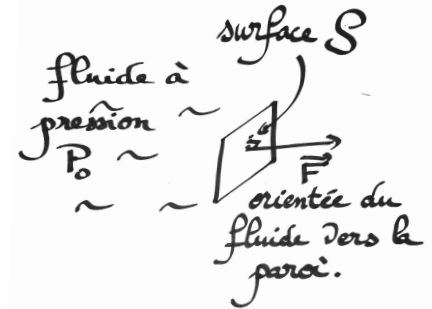 surface S
fluide à
pression
P₀
S
F⃗
orientée du
fluide vers la
paroi.